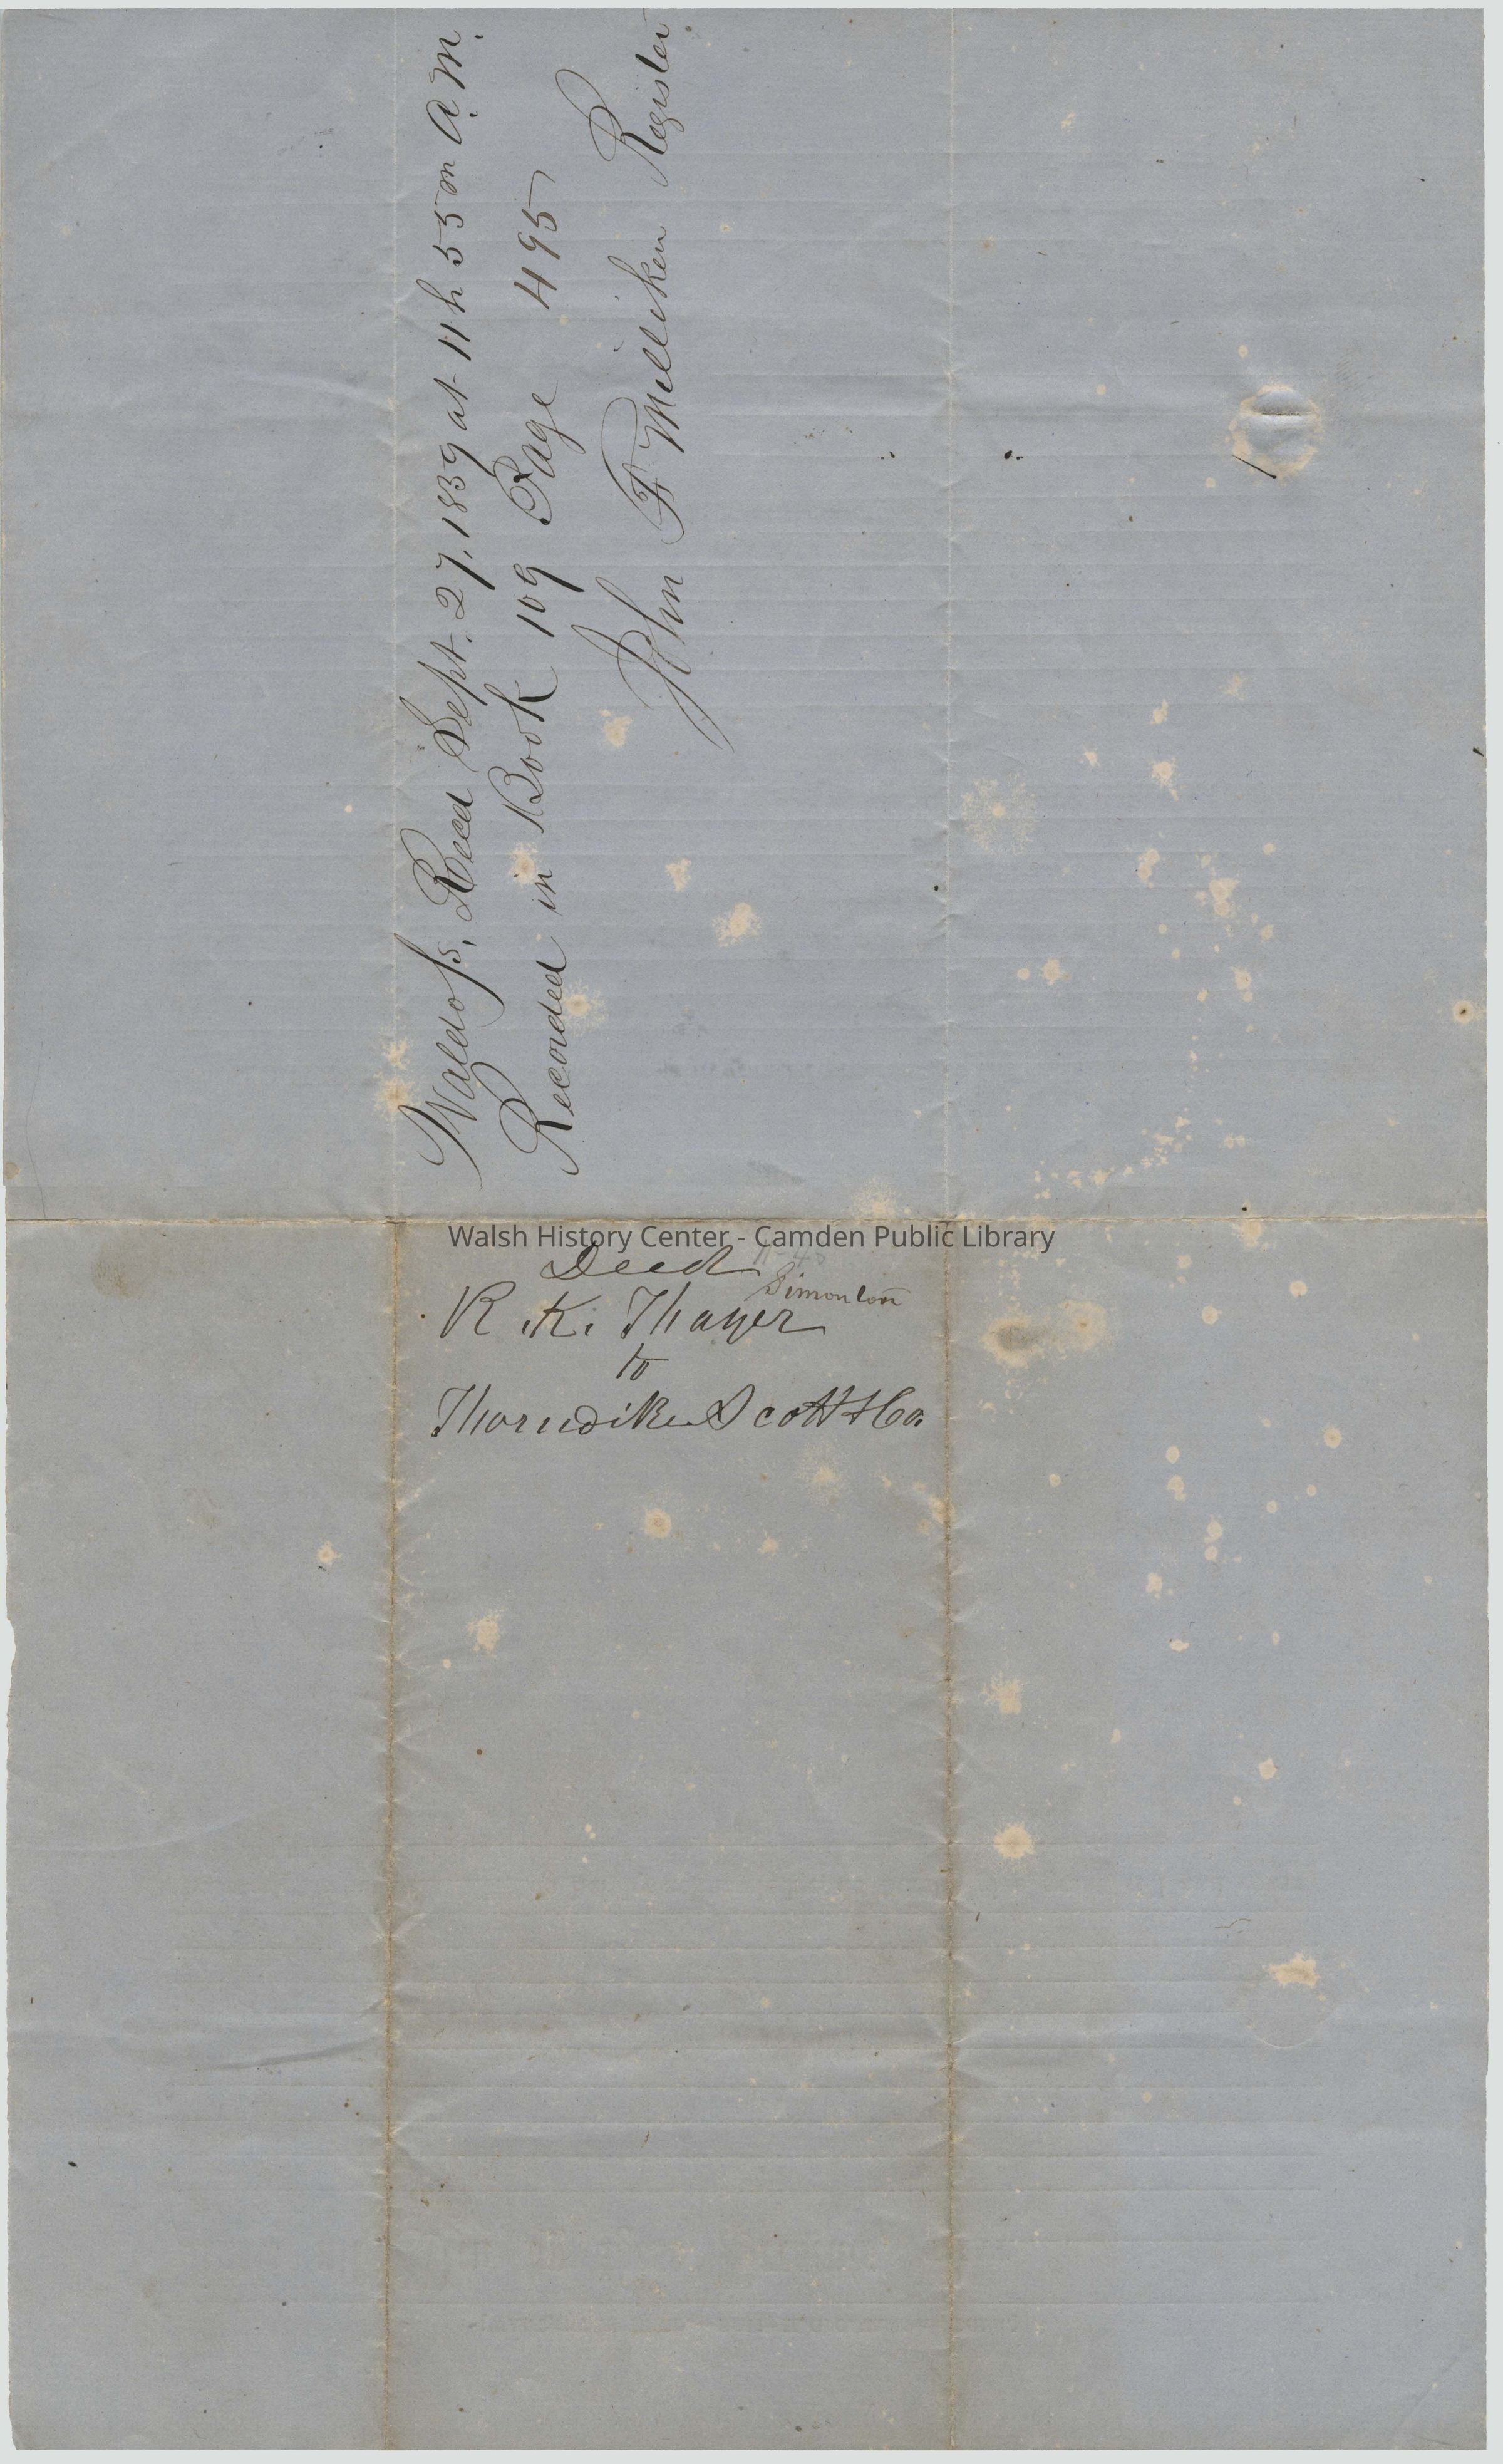 Waldo ss, Recd Sept. 27, 1839 at 11 h 55 m A.M.
Recorded in Book 109 Page 495
John F Milliken Register
Walsh History Center - Camden Public Library
Deed
Simonton
R. K. Thayer
to
Thorndike Scott & Co.